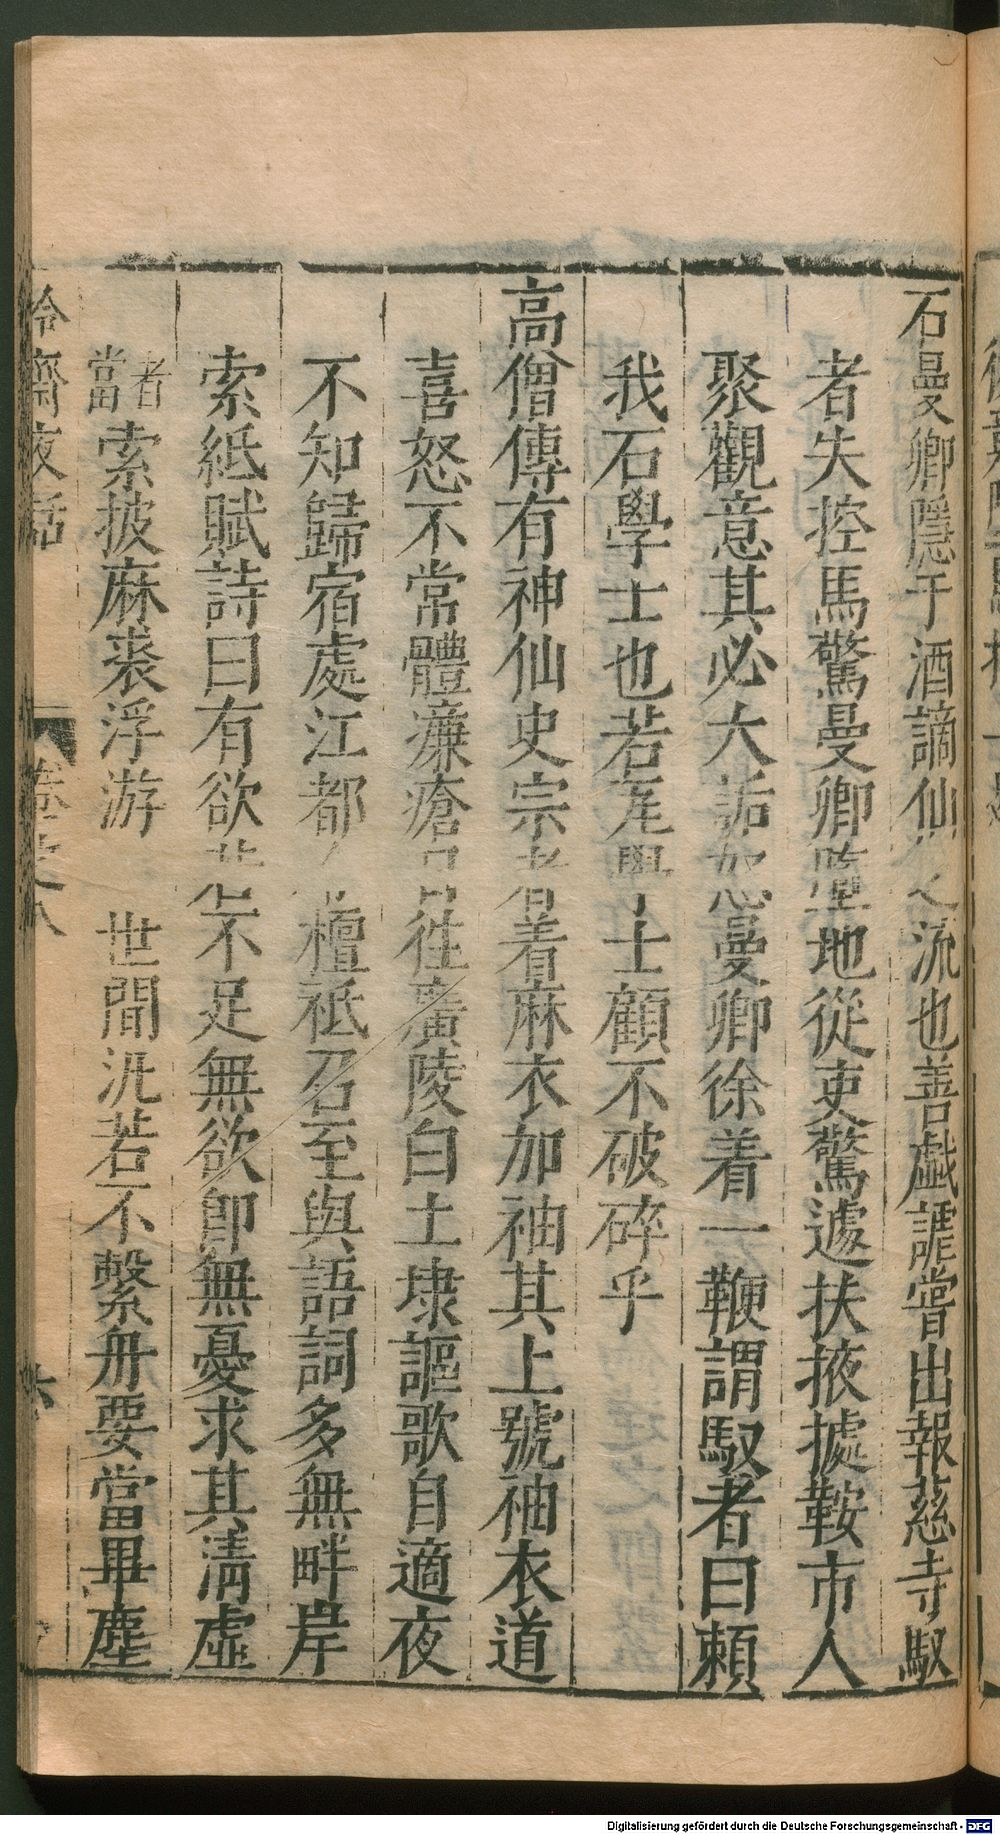 石曼卿隱于酒謫仙之流也善戲謔嘗出報慈寺馭
者失控馬驚曼卿墮地從吏驚遽扶掖據鞍市人
聚觀意其必大詬怒曼卿徐着一鞭謂馭者曰賴
我石學士也若瓦學士顧不破碎乎
高僧傳有神仙史宗者着麻衣加袖其上號袖衣道
喜怒不常體癢瘡日往廣陵白土埭謳歌自適夜
不知歸宿處江都檀祇召至與語詞多無畔岸
索紙賦詩曰有欲苦不足無欲卽無憂求其淸虛
者當索披麻裘浮游世間汎若不繫舟要當畢塵
冷齋夜話 卷之八
Digitalisierung gefördert durch die Deutsche Forschungsgemeinschaft - DFG